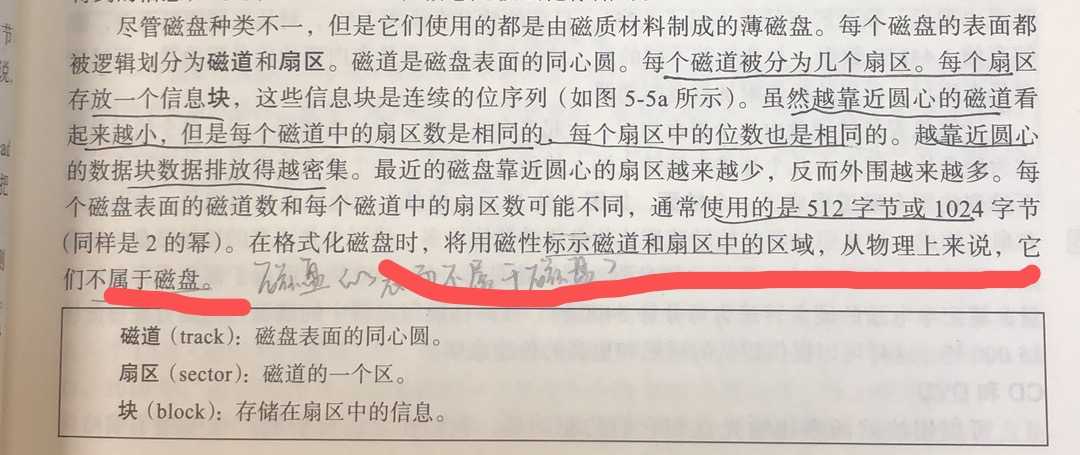 尽管磁盘种类不一，但是它们使用的都是由磁质材料制成的薄磁盘。每个磁盘的表面都
被逻辑划分为磁道和扇区。磁道是磁盘表面的同心圆。每个磁道被分为几个扇区。每个扇区
存放一个信息块，这些信息块是连续的位序列（如图 5-5a 所示）。虽然越靠近圆心的磁道看
起来越小，但是每个磁道中的扇区数是相同的，每个扇区中的位数也是相同的。越靠近圆心
的数据块数据排放得越密集。最近的磁盘靠近圆心的扇区越来越少，反而外围越来越多。每
个磁盘表面的磁道数和每个磁道中的扇区数可能不同，通常使用的是 512 字节或 1024 字节
(同样是 2 的幂）。在格式化磁盘时，将用磁性标示磁道和扇区中的区域，从物理上来说，它
们不属于磁盘。 磁盘 不属于磁盘？
磁道（track）：磁盘表面的同心圆。
扇区（sector）：磁道的一个区。
块（block）：存储在扇区中的信息。
CD 和 DVD